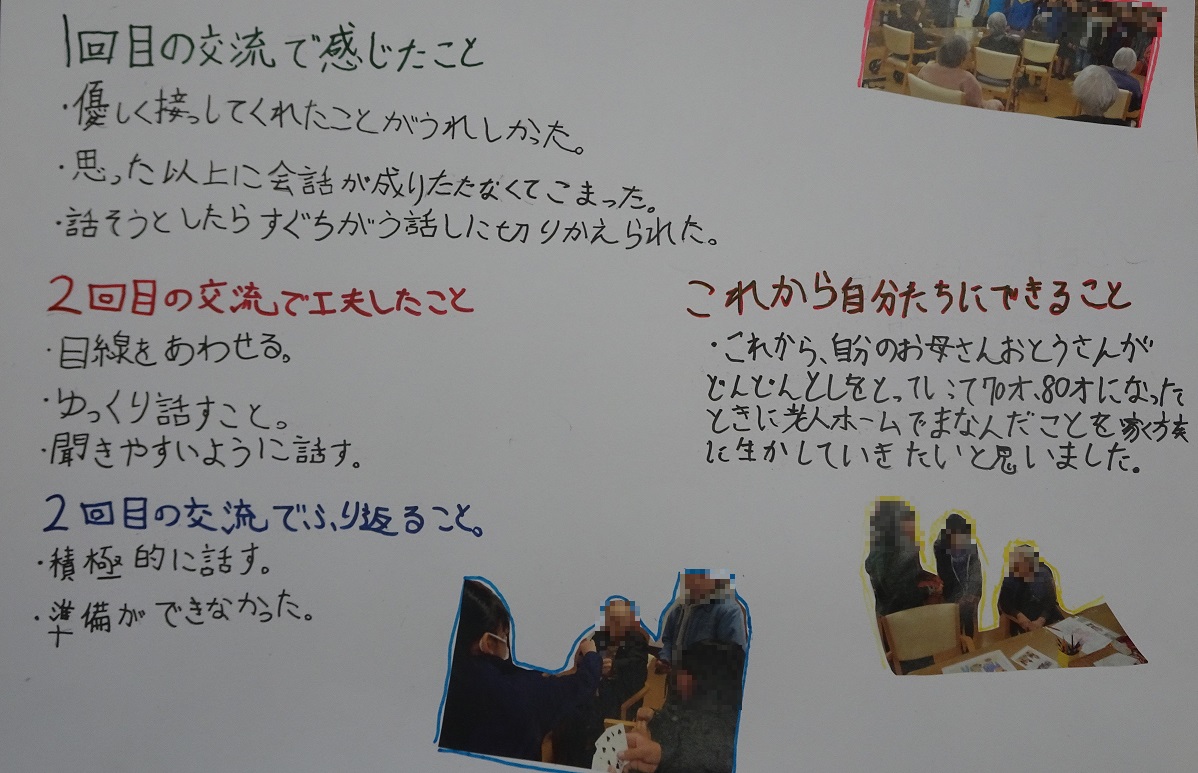 1回目の交流で感じたこと
・優しく接っしてくれたことがうれしかった。
・思った以上に会話が成りたたなくてこまった。
・話そうとしたらすぐちがう話しに切りかえられた。
2回目の交流で工夫したこと
・目線をあわせる。
・ゆっくり話すこと。
・聞きやすいように話す。
2回目の交流でふり返ること。
・積極的に話す。
・準備ができなかった。
これから自分たちにできること
・これから、自分のお母さんおとうさんが
どんどんとしをとっていって70才、80才になった
ときに老人ホームでまなんだことを家族
に生かしていきたいと思いました。